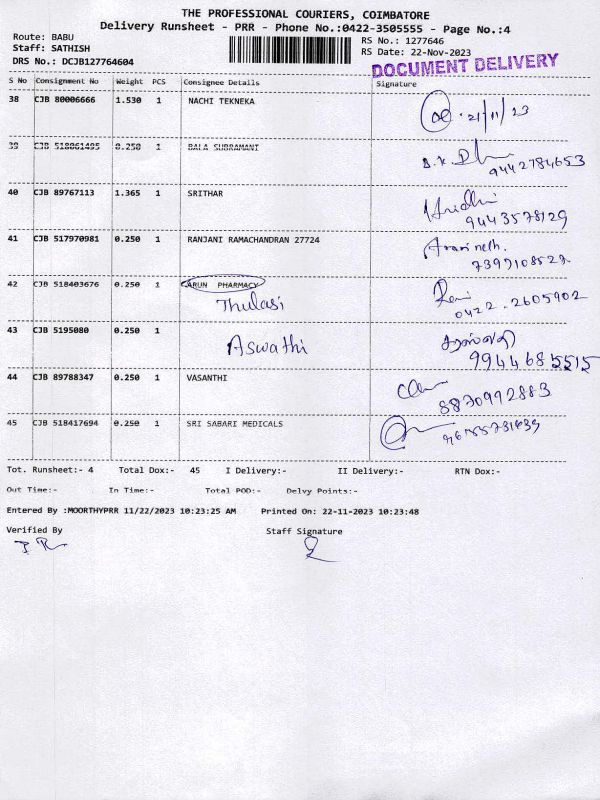 THE PROFESSIONAL COURIERS, COIMBATORE
Delivery Runsheet - PRR - Phone No.:0422-3505555 - Page No.:4
Route: BABU
Staff: SATHISH
DRS No.: DCJB127764604
RS No.: 1277646
RS Date: 22-Nov-2023
DOCUMENT DELIVERY
S No Consignment No Weight PCS Consignee Details Signature
38 CJB 80006666 1.530 1 NACHI TEKNEKA 21/11/23
39 CJB 518061495 0.250 1 BALA SUBRAMANI
9442784653
40 CJB 89767113 1.365 1 SRITHAR
9443578129
41 CJB 517970981 0.250 1 RANJANI RAMACHANDRAN 27724
42 CJB 518403676 0.250 1 ARUN PHARMACY
Thulasi 0422-2605902
43 CJB 5195080 0.250 1
Aswathi சரஸ்வதி
9944685515
44 CJB 89788347 0.250 1 VASANTHI
8870992883
45 CJB 518417694 0.250 1 SRI SABARI MEDICALS
Tot. Runsheet:- 4 Total Dox:- 45 I Delivery:- II Delivery:- RTN Dox:-
Out Time:- In Time:- Total POD:- Delvy Points:-
Entered By :MOORTHYPRR 11/22/2023 10:23:25 AM Printed On: 22-11-2023 10:23:48
Verified By Staff Signature